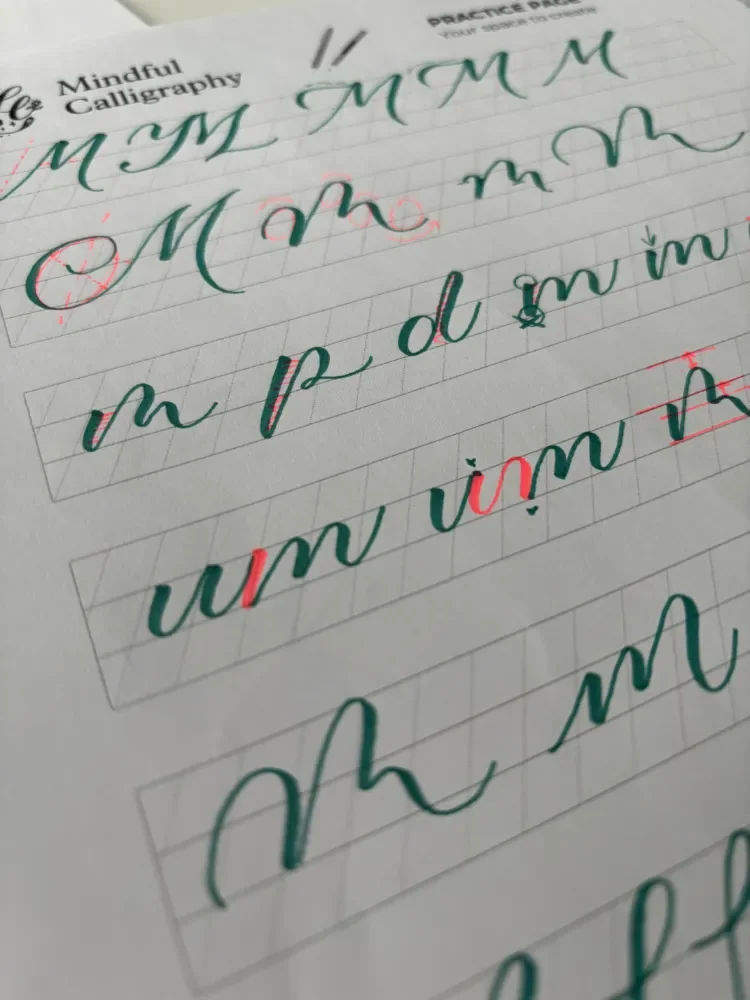 Mindful
Calligraphy
PRACTICE PAGE
Your space to create
M M M M M
M m m m
m p d m m
um m
m m